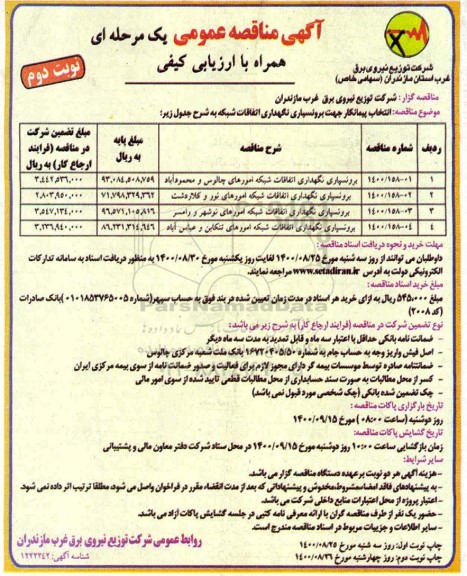 آگهی مناقصه عمومی یک مرحله ای
همراه با ارزیابی کیفی
نوبت دوم
شرکت توزیع نیروی برق
غرب استان مازندران (سهامی خاص)
مناقصه گزار: شرکت توزیع نیروی برق غرب مازندران
موضوع مناقصه: انتخاب پیمانکار جهت برونسپاری نگهداری اتفاقات شبکه به شرح جدول زیر:
ردیف شماره مناقصه شرح مناقصه مبلغ پایه به ریال مبلغ تضمین شرکت در مناقصه (فرایند ارجاع کار) به ریال
۱ ۱۴۰۰/۱۵۸-۰۱ برونسپاری نگهداری اتفاقات شبکه امورهای چالوس و محمودآباد ۹۳,۰۸۴,۵۰۸,۷۵۹ ۳,۴۴۲,۵۳۶,۰۰۰
۲ ۱۴۰۰/۱۵۸-۰۲ برونسپاری نگهداری اتفاقات شبکه امورهای نور و کلاردشت ۷۱,۷۹۸,۳۲۹,۳۶۲ ۲,۸۰۳,۹۵۰,۰۰۰
۳ ۱۴۰۰/۱۵۸-۰۳ برونسپاری نگهداری اتفاقات شبکه امورهای نوشهر و رامسر ۹۶,۵۷۱,۱۰۵,۸۱۶ ۳,۵۴۷,۱۳۴,۰۰۰
۴ ۱۴۰۰/۱۵۸-۰۴ برونسپاری نگهداری اتفاقات شبکه امورهای تنکابن و عباس آباد ۸۶,۲۳۱,۳۱۴,۶۴۶ ۳,۲۳۶,۹۴۰,۰۰۰
مهلت خرید و نحوه دریافت اسناد مناقصه:
داوطلبان می توانند از روز سه شنبه مورخ ۱۴۰۰/۰۸/۲۵ لغایت روز یکشنبه مورخ ۱۴۰۰/۰۸/۳۰ به منظور دریافت اسناد به سامانه تدارکات
الکترونیکی دولت به آدرس www.setadiran.ir مراجعه نمایند.
مبلغ خرید اسناد مناقصه:
مبلغ ۵۴۵,۰۰۰ ریال به ازای خرید هر اسناد در مدت زمان تعیین شده در بند فوق به حساب سپهر (شماره ۰۱۰۱۸۵۳۷۶۵۰۰۵) بانک صادرات
(کد ۲۰۰۸)
نوع تضمین شرکت در مناقصه (فرایند ارجاع کار) به شرح زیر می باشد:
- ضمانت نامه بانکی حداقل با اعتبار سه ماه و قابل تمدید به مدت سه ماه دیگر
- اصل فیش واریز وجه به حساب جام به شماره ۱۶۷۲۰۴۰۵/۵۰ بانک ملت شعبه مرکزی چالوس
- ضمانتنامه صادره توسط موسسات بیمه گر دارای مجوز لازم برای فعالیت و صدور ضمانت نامه از سوی بیمه مرکزی ایران
- کسر از محل مطالبات به صورت سند حسابداری از محل مطالبات قطعی تایید شده از سوی امور مالی
- چک تضمین شده بانکی (چک شخصی مورد قبول نمی باشد)
تاریخ بارگزاری پاکات مناقصه:
روز دوشنبه (ساعت ۰۸:۰۰) مورخ ۱۴۰۰/۰۹/۱۵
تاریخ گشایش پاکات مناقصه:
زمان بازگشایی ساعت ۱۰:۰۰ روز دوشنبه مورخ ۱۴۰۰/۰۹/۱۵ در محل ستاد شرکت دفتر معاون مالی و پشتیبانی
سایر شرایط:
- هزینه آگهی هر دو نوبت برعهده دستگاه مناقصه گزار می باشد.
- به پیشنهادهای فاقد امضا، مشروط، مخدوش و پیشنهاداتی که بعد از مدت انقضاء مقرر در فراخوان واصل می شود، مطلقا ترتیب اثر داده نمی شود.
- اعتبار پروژه از محل اعتبارات منابع داخلی شرکت می باشد.
- حضور یک نفر از طرف مناقصه گران با ارائه معرفی نامه کتبی در جلسه گشایش پاکات آزاد می باشد.
- سایر اطلاعات و جزییات مربوط در اسناد مناقصه مندرج است.
چاپ نوبت اول: روز سه شنبه مورخ ۱۴۰۰/۰۸/۲۵
چاپ نوبت دوم: روز چهارشنبه مورخ ۱۴۰۰/۰۸/۲۶
روابط عمومی شرکت توزیع نیروی برق غرب مازندران
شناسه آگهی: ۱۲۲۲۲۴۲
ParsNamadData